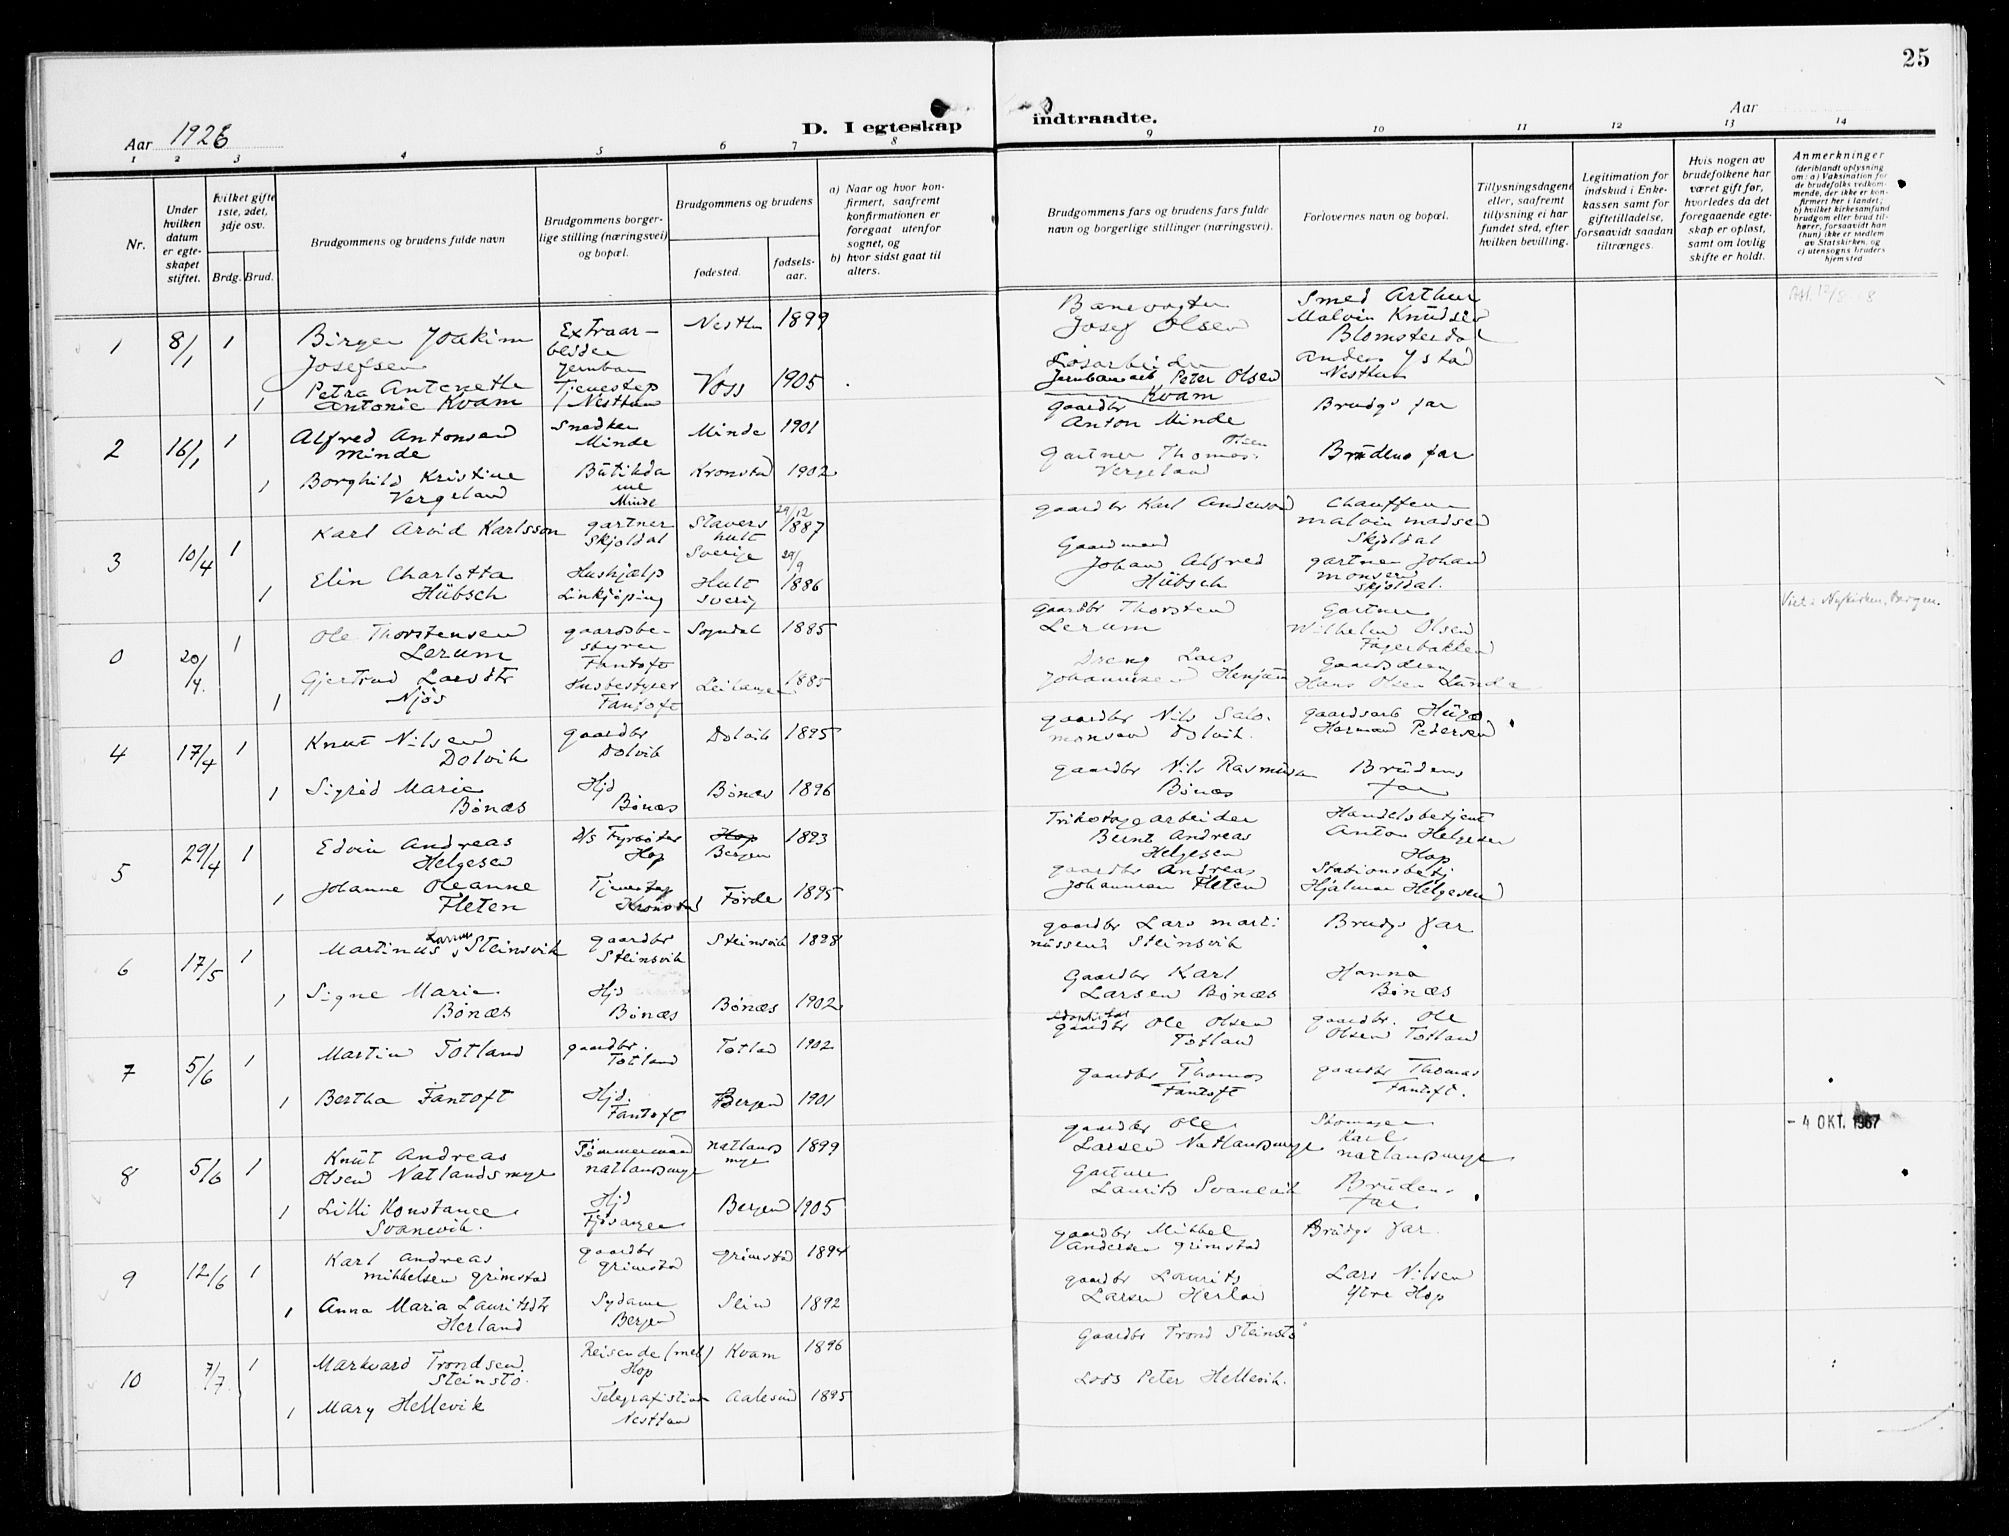 25
Aar 1926
D. I egteskap indtraadte.
Aar
1 2 3 4 5 6 7 8 9 10 11 12 13 14
Nr.
Under hvilken datum er egteskapet stiftet.
hvilket gifte 1ste, 2det, 3dje osv.
Brdg. Brud.
Brudgommens og brudens fulde navn
Brudgommens borgerlige stilling (næringsvei) og bopæl.
Brudgommens og brudens
fødested.
fødselsaar.
a) Naar og hvor konfirmert, saafremt konfirmationen er foregaat utenfor sognet, og
b) hvor sidst gaat til alters.
Brudgommens fars og brudens fars fulde navn og borgerlige stillinger (næringsvei).
Forlovernes navn og bopæl.
Tillysningsdagene eller, saafremt tillysning ei har fundet sted, efter hvilken bevilling.
Legitimation for indskud i Enkekassen samt for giftetilladelse, forsaavidt saadan tiltrænges.
Hvis nogen av brudefolkene har været gift før, hvorledes da det foregaaende egteskap er opløst, samt om lovlig skifte er holdt.
Anmerkninger
(deriblandt oplysning om: a) Vaksination for de brudefolks vedkommende, der ikke er konfirmert her i landet; b) hvilket kirkesamfund brudgom eller brud tilhører, forsaavidt han (hun) ikke er medlem av Statskirken, og c) utensogns bruders hjemsted
1 8/1 1 Birger Joakim Josefsen Extraarbeider Jernban Nesttun 1899 Banevogter Josef Olsen Smed Arthur Malvin Knudsen Blomsterdal
1 Petra Antonette Antonie Kvam Tjenestep Nesttun Voss 1905 Jernbanearb Peter Olsen Kvam Anders Ystad Nesttun
2 16/1 1 Alfred Antonsen Minde Snedker Minde Minde 1901 gaardbr Anton Minde Brudgs far
1 Borghild Kristine Vergeland Butikdame Minde Kronstad 1902 Gartner Thomas Olsen Vergeland Brudens far
3 10/4 1 Karl Arvid Karlsson gartner Skjoldal Stavershult Sverige 29/12 1887 gaardbr Karl Anderson Chauffeur Malvin Madsen Skjoldal
1 Elin Charlotta Hübsch Hushjælp Linkjøping Hult Sverig 29/9 1886 Gaardmand Johan Alfred Hübsch gartner Johan Monsen Skjoldal.
0 20/4. 1 Ole Thorstensen Lerum gaardsbestyrer Fantoft Sogndal 1885 gaardbr Thorsten Lerum Gartner Wilhelm Olsen Fagerbakken Viet i Nykirken, Bergen.
1 Gjertrud Larsdtr Njøs Husbestyrer Fantoft Leikanger 1885 Dreng Lars Johannesen Henjum Gaardsdreng Hans Olsen
4 17/4 1 Knut Nilsen Dolvik gaardbr Dolvik Dolvik 1895 gaardbr Nils Salomonsen Dolvik. gaardsarb Hugo Herman Pedersen
1 Sigrid Marie Bønæs Hjd Bønæs Bønæs 1896 gaardbr Nils Rasmussen Bønæs Brudens far
5 29/4 1 Edvin Andreas Helgesen D/S Fyrbøter Hop Hop Bergen 1893 Trikotagearbeider Bernt Andreas Helgesen Handelsbetjent Anton Helgesen Hop
1 Johanne Oleanne Fleten Tjenestep Kronstad Førde 1895 gaardbr Andreas Johannesen Fleten Stationsbetj. Hjalmar Helgesen
6 17/5 1 Martinus Larsen Steinsvik gaardbr Steinsvik Steinsvik 1898 gaardbr Lars Martinussen Steinsvik Brudgs far
1 Signe Marie Bønæs Hjd Bønæs Bønæs 1902 Gaardbr Karl Larsen Bønæs Hanna Bønæs
7 5/6 1 Martin Totland gaardbr. Totland Totlad 1902 gaardbr Ole Olsen Totland gaardbr. Ole Olsen Totland
1 Bertha Fantoft Hjd. Fantoft Bergen 1901 gaardbr Thomas Fantoft gaardbr Thomas Fantoft.
- 4 OKT. 1967
8 5/6 1 Knut Andreas Olsen Natlandsmyr Tømmermand Natlandsmyr Natlandsmyr 1899 gaardbr Ole Larsen Natlandsmyr Skomager Karl Natlandsmyr
1 Lilli Konstance Svanevik. Hjd Fjøsanger Bergen 1905 Gartner Laurits Svanevik Brudens far
9 12/6 1 Karl Andreas Mikkelsen Grimstad gaardbr Grimstad Grimstad 1894 gaardbr Mikkel Andersen Grimstad Brudgs far.
1 Anna Maria Lauritsdtr Herland Sydame Bergen 1892 gaardbr Laurits Larsen Herland Lars Nilsen Ytre Hop
10 7/7. 1 Markvard Trondsen Steinstø. Reisende (mel) Hop Kvam 1896 Gaardbr Trond Steinstø
1 Mary Hellevik Telegrafistinde Nesttun Aalesund 1895 Lods Peter Hellevik.